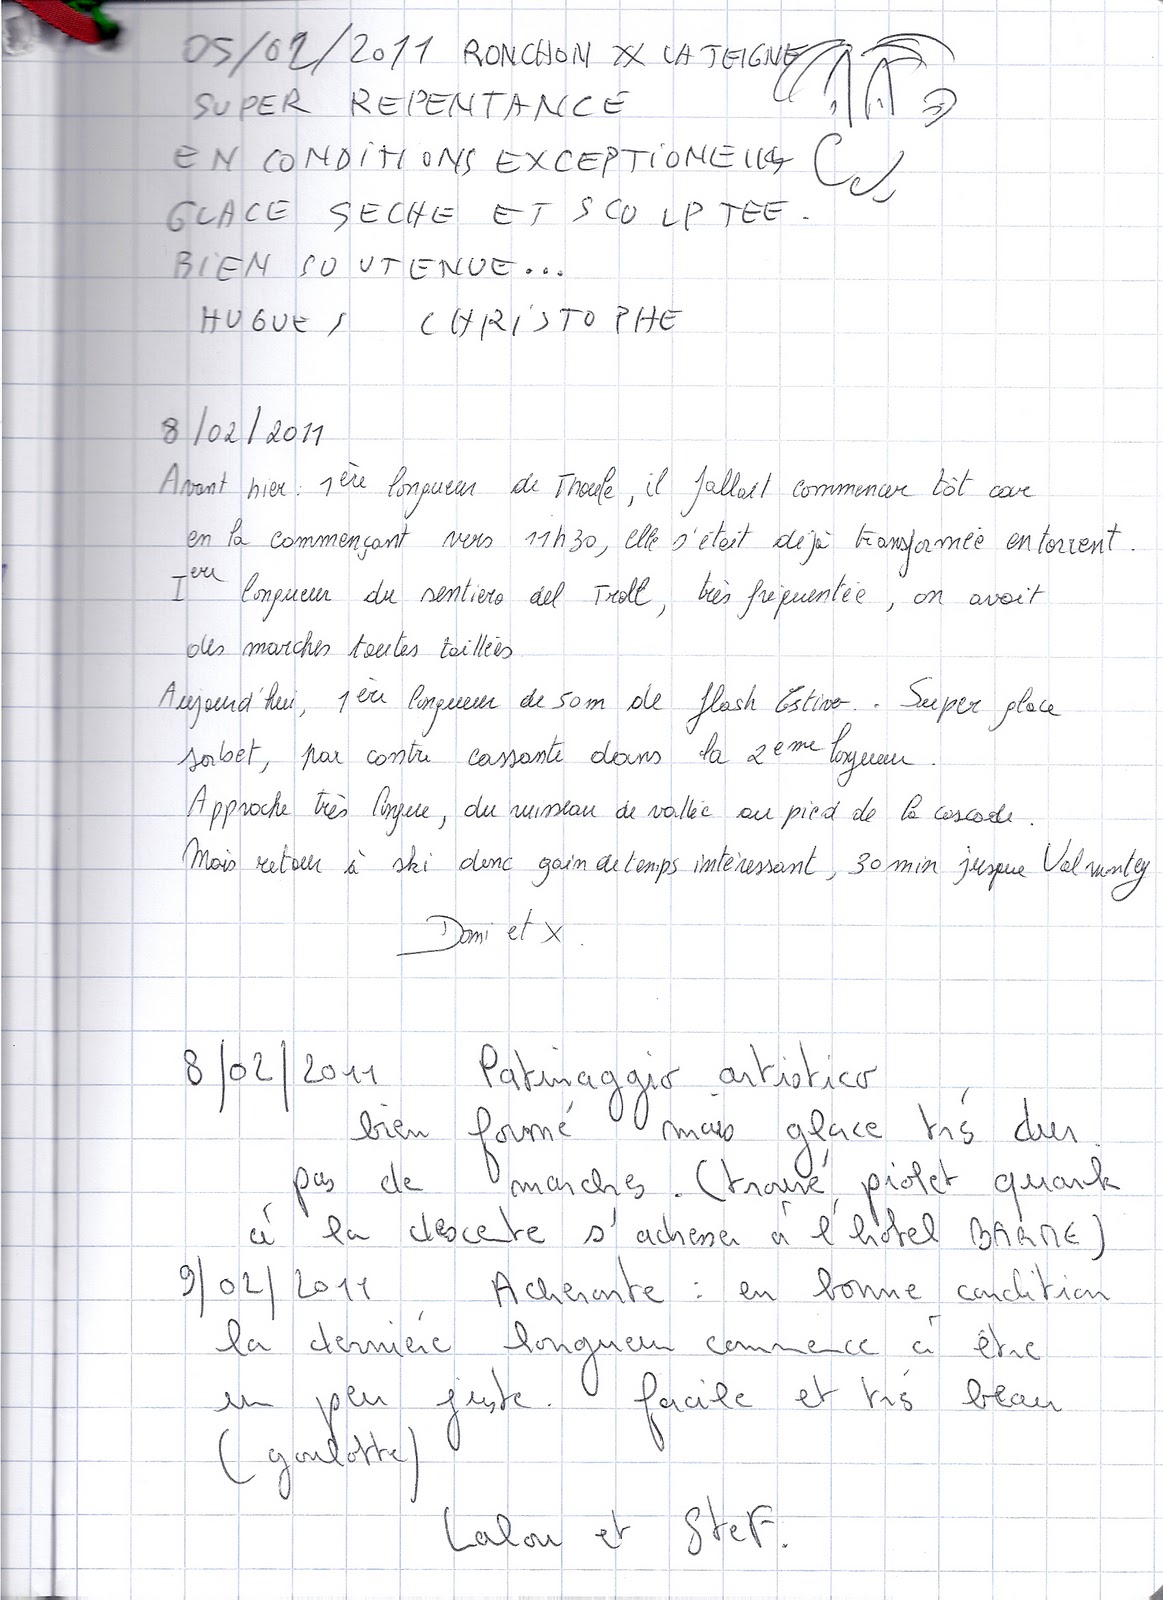 05/02/2011 RONCHON XX LA TEIGNE
SUPER REPENTANCE
EN CONDITIONS EXCEPTIONELLES
GLACE SECHE ET SCULPTEE.
BIEN SOUTENUE...
HUGUES CHRISTOPHE
8/02/2011
Avant hier: 1ère longueur de Thoule, il fallait commencer tôt car
en la commençant vers 11h30, elle s'était déjà transformée en torrent.
1ere longueur du sentiero del Troll, très fréquentée, on avait
des marches toutes taillées
Aujourd'hui, 1ère longueur de 50m de flash Estivo. Super glace
sorbet, par contre cassante dans la 2eme longueur.
Approche très longue, du ruisseau de vallée au pied de la cascade.
Mais retour à ski donc gain de temps intéressant, 30 min jusque Valnontey
Domi et X.
8/02/2011 Patinaggio artistico
bien formé mais glace trés dur.
pas de marches. (trouvé piolet quark
à la descente s'adresser à l'hotel BARME)
9/02/2011 Acheronte: en bonne condition
la derniére longueur commence à être
un peu juste. facile et trés beau
(goulotte)
Lalou et Stef.